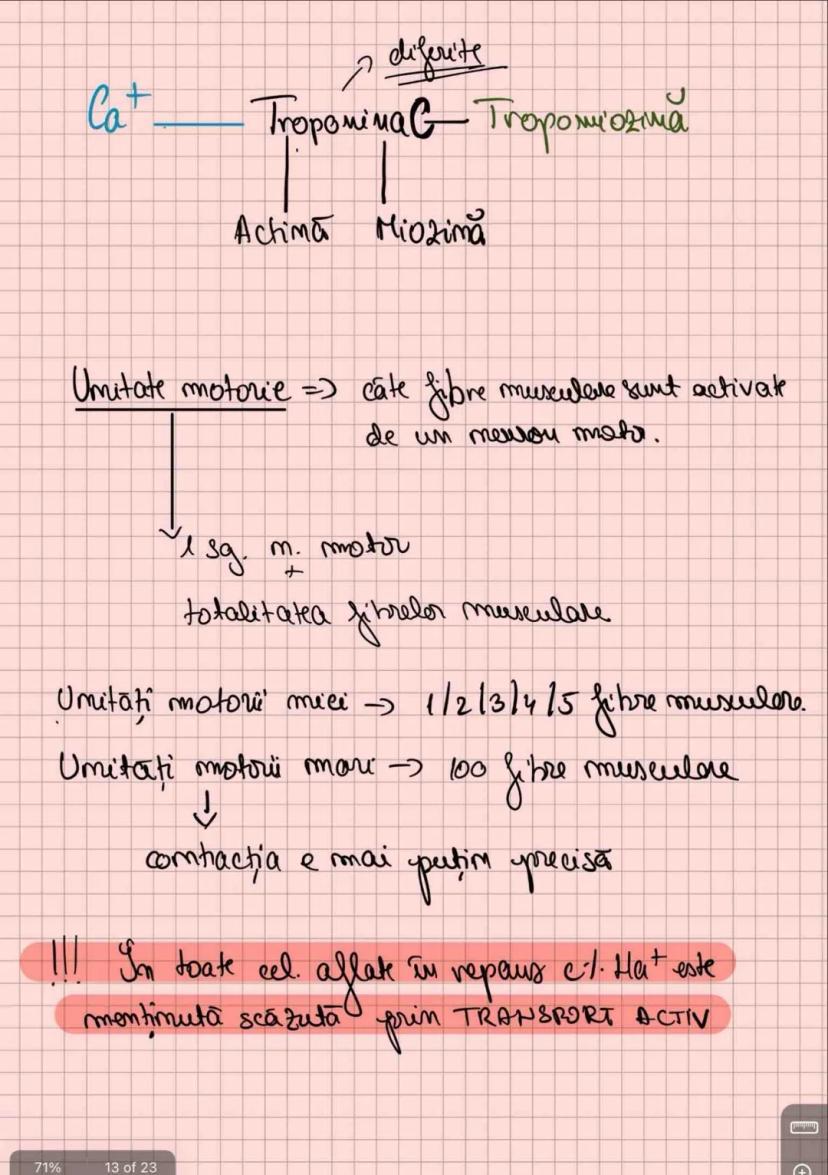 diferite
Ca+ Troponina C Tropomiozină
Actină Miozină
Unitate motorie => câte fibre musculare sunt activate
de un neuron motor.
1 sg. n. motor
+
totalitatea fibrelor musculare
Unități motorii mici → 1/2/3/4/5 fibre musculare.
Unități motorii mari → 100 fibre musculare
contracția e mai puțin precisă
!!! În toate cel. aflate în repaus c% Na+ este
menținută scăzută prin TRANSPORT ACTIV
71% 13 of 23